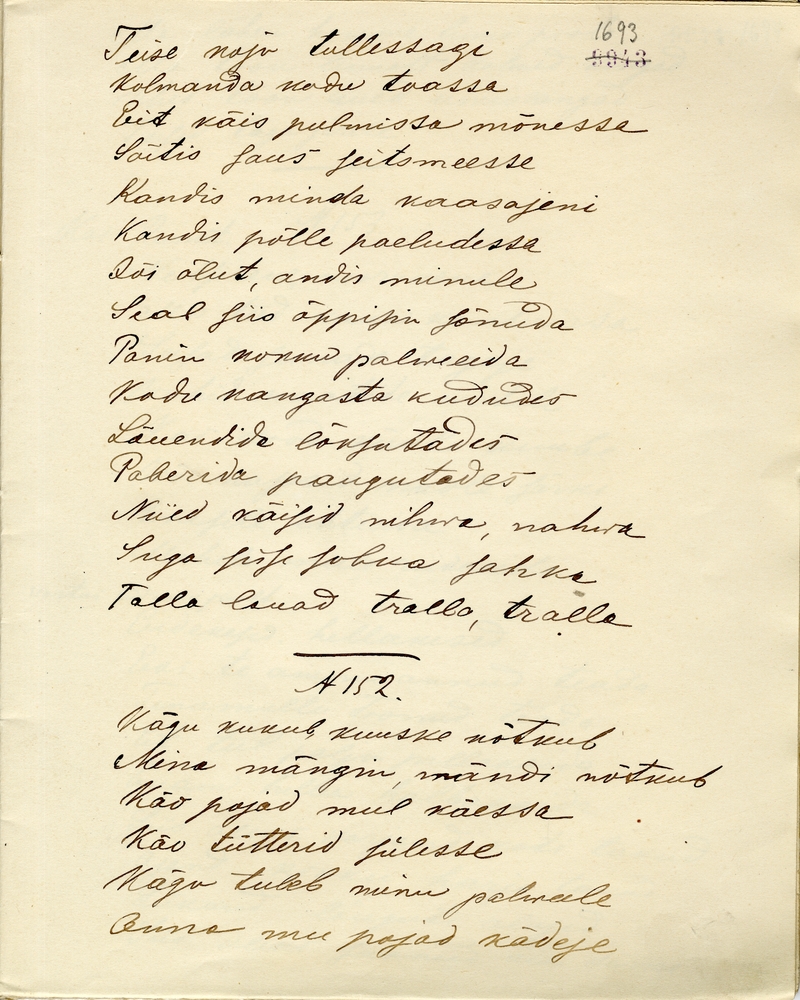 1693
9943
Teise noju tullessagi
Kolmanda kodu toassa
Eit käis pulmissa mõnessa
Sõitis saus seitsmeesse
Kandis minda kaasajeni
Kandis põlle paeludessa
Jõi õlut, andis minule
Seal siis õppisin sõnuda
Panin kokku palweeida
Kodu kangasta kududes
Lõuendida lõksutades
Paberida paugutades
Niied käisid nihwa, nahwa
Suga sise sohka sahka
Talla lauad tralla, tralla
N 152.
Kägu kukub, kuuske nõtkub
Mina mängin, mändi nõtkub
Käo pojad mul käessa
Käo tütterid sülesse
Kägu tuleb minu palweele
Anna mu pojad kädeje